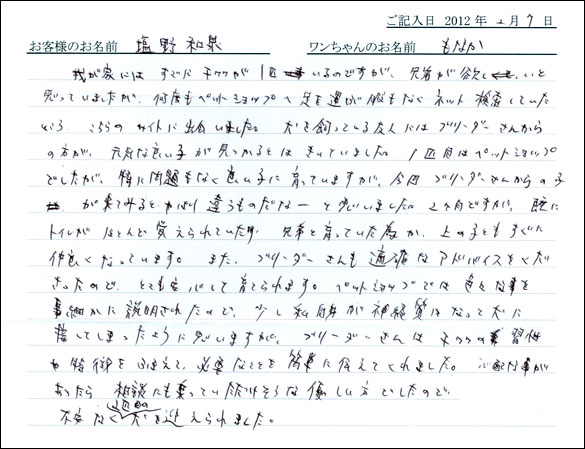 ご記入日 2012年 2月 7日
お客様のお名前 塩野 和泉 ワンちゃんのお名前 もなか
我が家には すでに チワワが 1匹 いるのですが、兄弟が欲しいと
思っていましたが、何度もペットショップへ 足を運ぶ 暇もなく ネット検索していた
ところ こちらの サイトに出会いました。犬を飼っている友人には ブリーダーさんから
の方が、元気な良い子が見つかるとは きいていました。1匹目はペットショップ
でしたが、特に問題もなく良い子に育っていますが、今回 ブリーダーさんからの子
が来てみると やはり 違うものだなーと思いました。2ヶ月ですが、既に
トイレが ほとんど 覚えられていたり 兄弟と育っていた為か、上の子ともすぐに
仲良くなっています。また、ブリーダーさんも適確なアドバイスをくだ
さったので、とても安心して育てられます。ペットショップでは色々な事を
事細かに説明されたので、少し私自身が神経質になって犬に
接してしまったように思いますが、ブリーダーさんは チワワの習性
や特徴をふまえて、必要なことを簡単に伝えてくれました。心配な事が
あったら 相談にも乗っていただけそうな優しい方でしたので
不安なく 2匹目の犬を迎えられました。